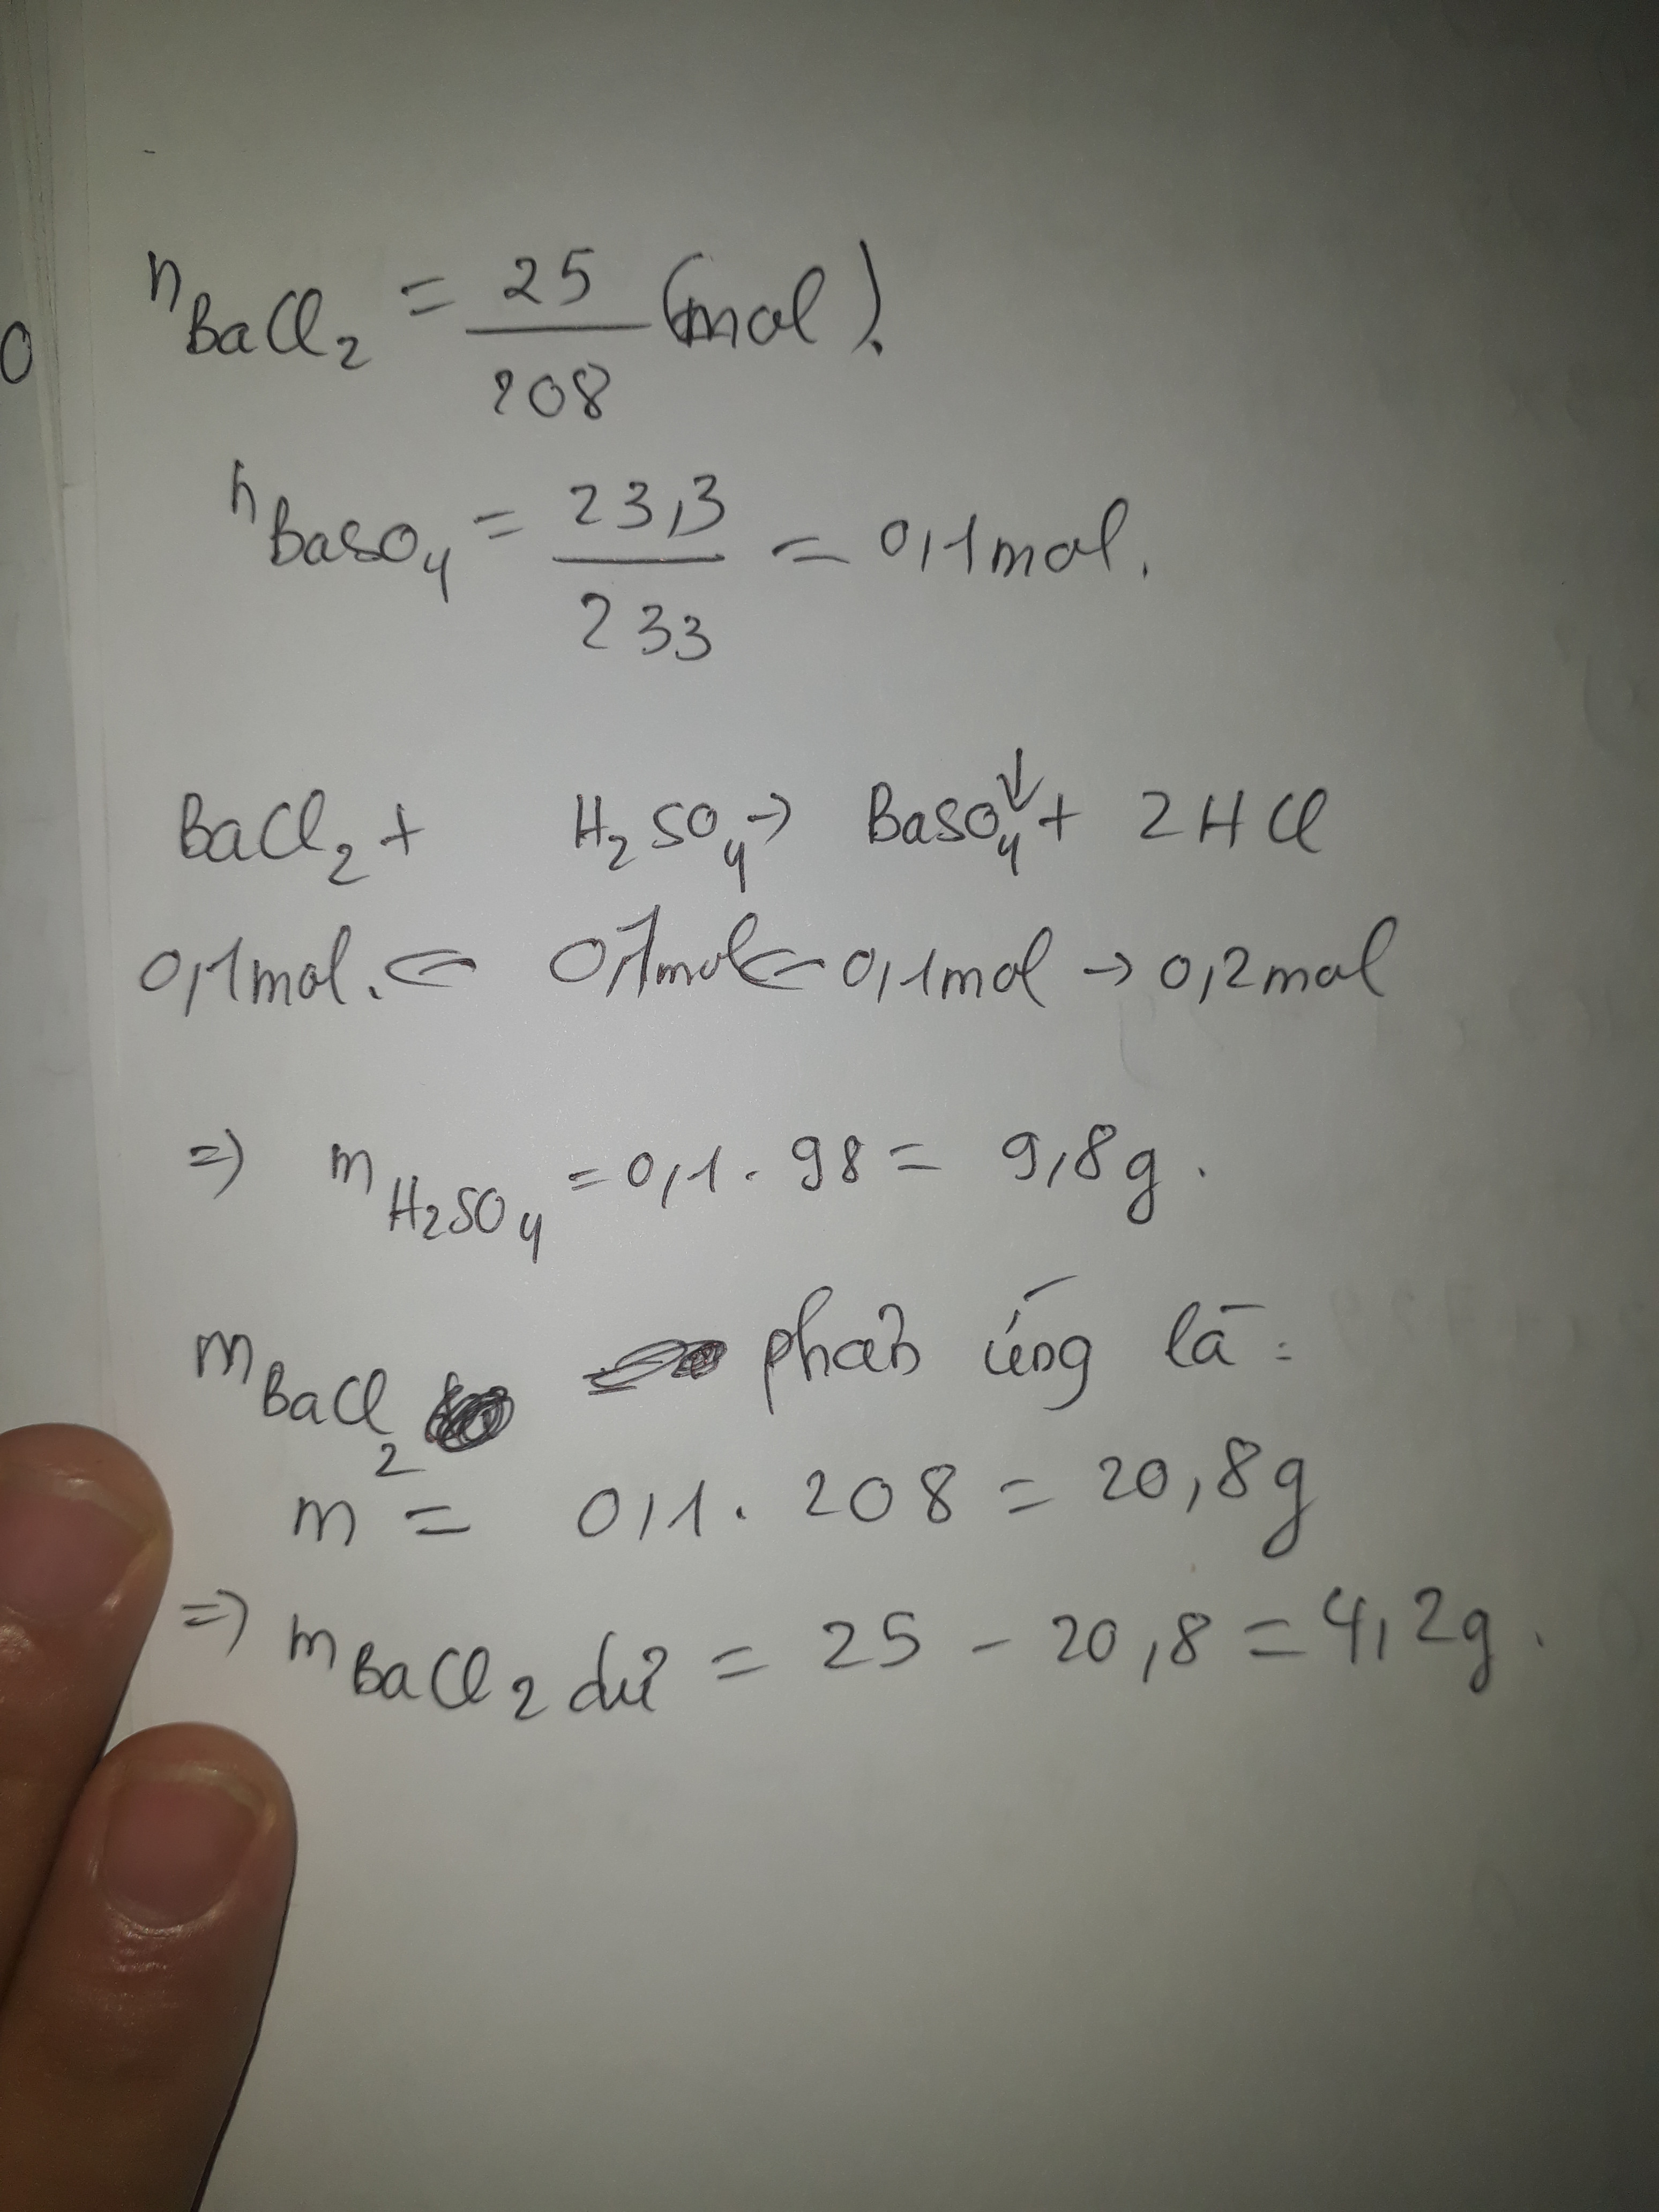 n BaCl2 = 25/208 (mol).
n BaSO4 = 23,3/233 = 0,1mol.
BaCl2 + H2SO4 → BaSO4↓ + 2HCl
0,1mol. ← 0,1mol ← 0,1mol → 0,2mol
=> m H2SO4 = 0,1 . 98 = 9,8g.
m BaCl2 phản ứng là:
m = 0,1 . 208 = 20,8g
=> m BaCl2 dư = 25 - 20,8 = 4,2g.
0